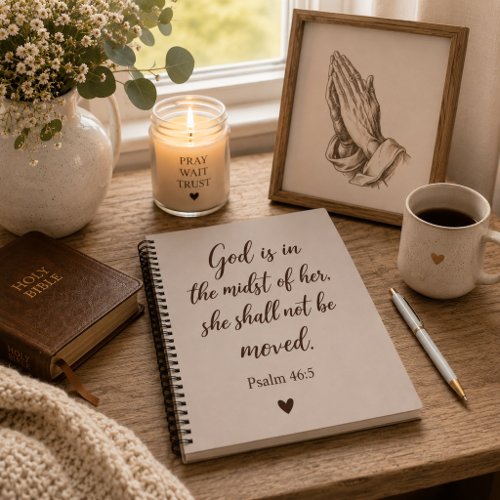 PRAY
WAIT
TRUST
HOLY
BIBLE
HOLY
BIBLE
God is in
the midst of her,
she shall not be
moved.
Psalm 46:5